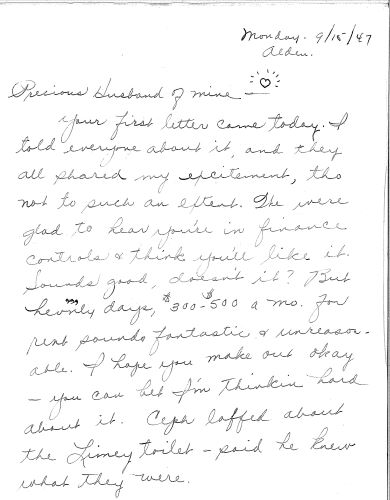 Monday. 9/15/47
Alden.
Precious Husband of mine —
your first letter came today. I
told everyone about it, and they
all shared my excitement, tho
not to such an extent. We were
glad to hear you're in finance
controls & think you'll like it.
Sounds good, doesn't it? But
heavenly days, $300-$500 a mo. for
rent sounds fantastic & unreason-
able. I hope you make out okay
— you can bet I'm thinkin hard
about it. Ceph laffed about
the Limey toilet — said he knew
what they were.